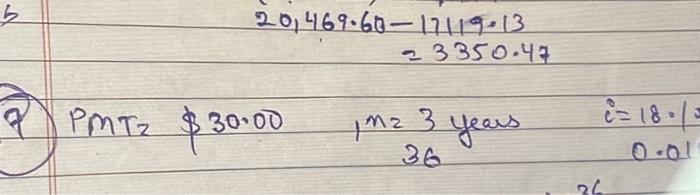 b
20,469.60 - 17119.13
= 3350.47
9 PMT= $30.00 , n= 3 years i= 18%
36 0.01
36